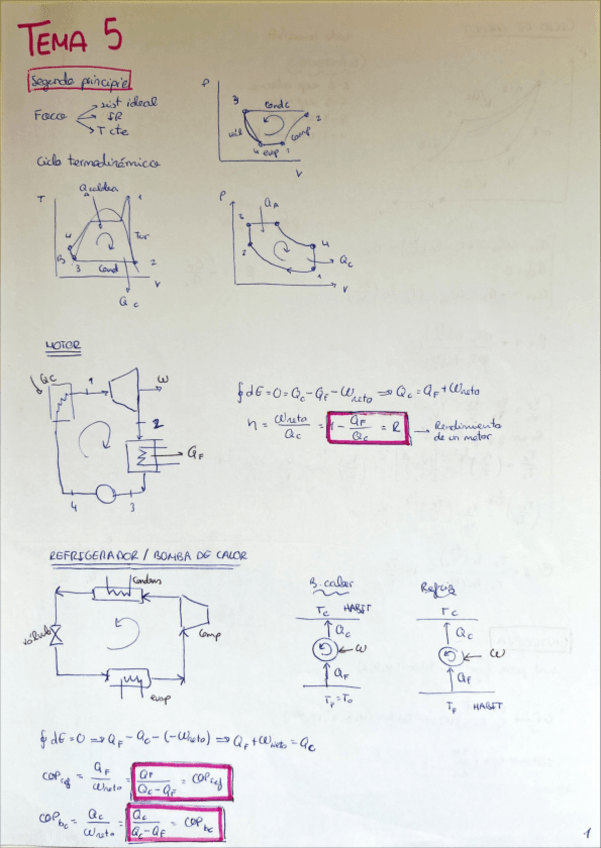 TEMA 5
Segundo principio
Foco
sist ideal
SR
T cte
Ciclo termodinámico
P
3
condc
2
valv
comp
4
evap
1
V
T
Q caldera
1
4
Tur
B
3
Cond
2
V
Q C
P
Q A
3
2
4
Q C
1
V
MOTOR
QC
1
W
2
Q F
4
3
∮dE=0=Qc-QF-Wneto ⟹ Qc=QF+Wneto
η = Wneto/Qc = 1 - QF/Qc = R → Rendimiento de un motor
REFRIGERADOR / BOMBA DE CALOR
Condens
válvula
Comp
evap
B. calor
Tc HABIT
Qc
W
QF
TF=To
Refrig
Tc
Qc
W
QF
TF HABIT
∮dE=0 ⟹ QF - Qc - (-Wneto) ⟹ QF + Wneto = Qc
COPref = QF/Wneto = QF/(Qc-QF) = COPref
COPbc = Qc/Wneto = Qc/(Qc-QF) = COPbc
1